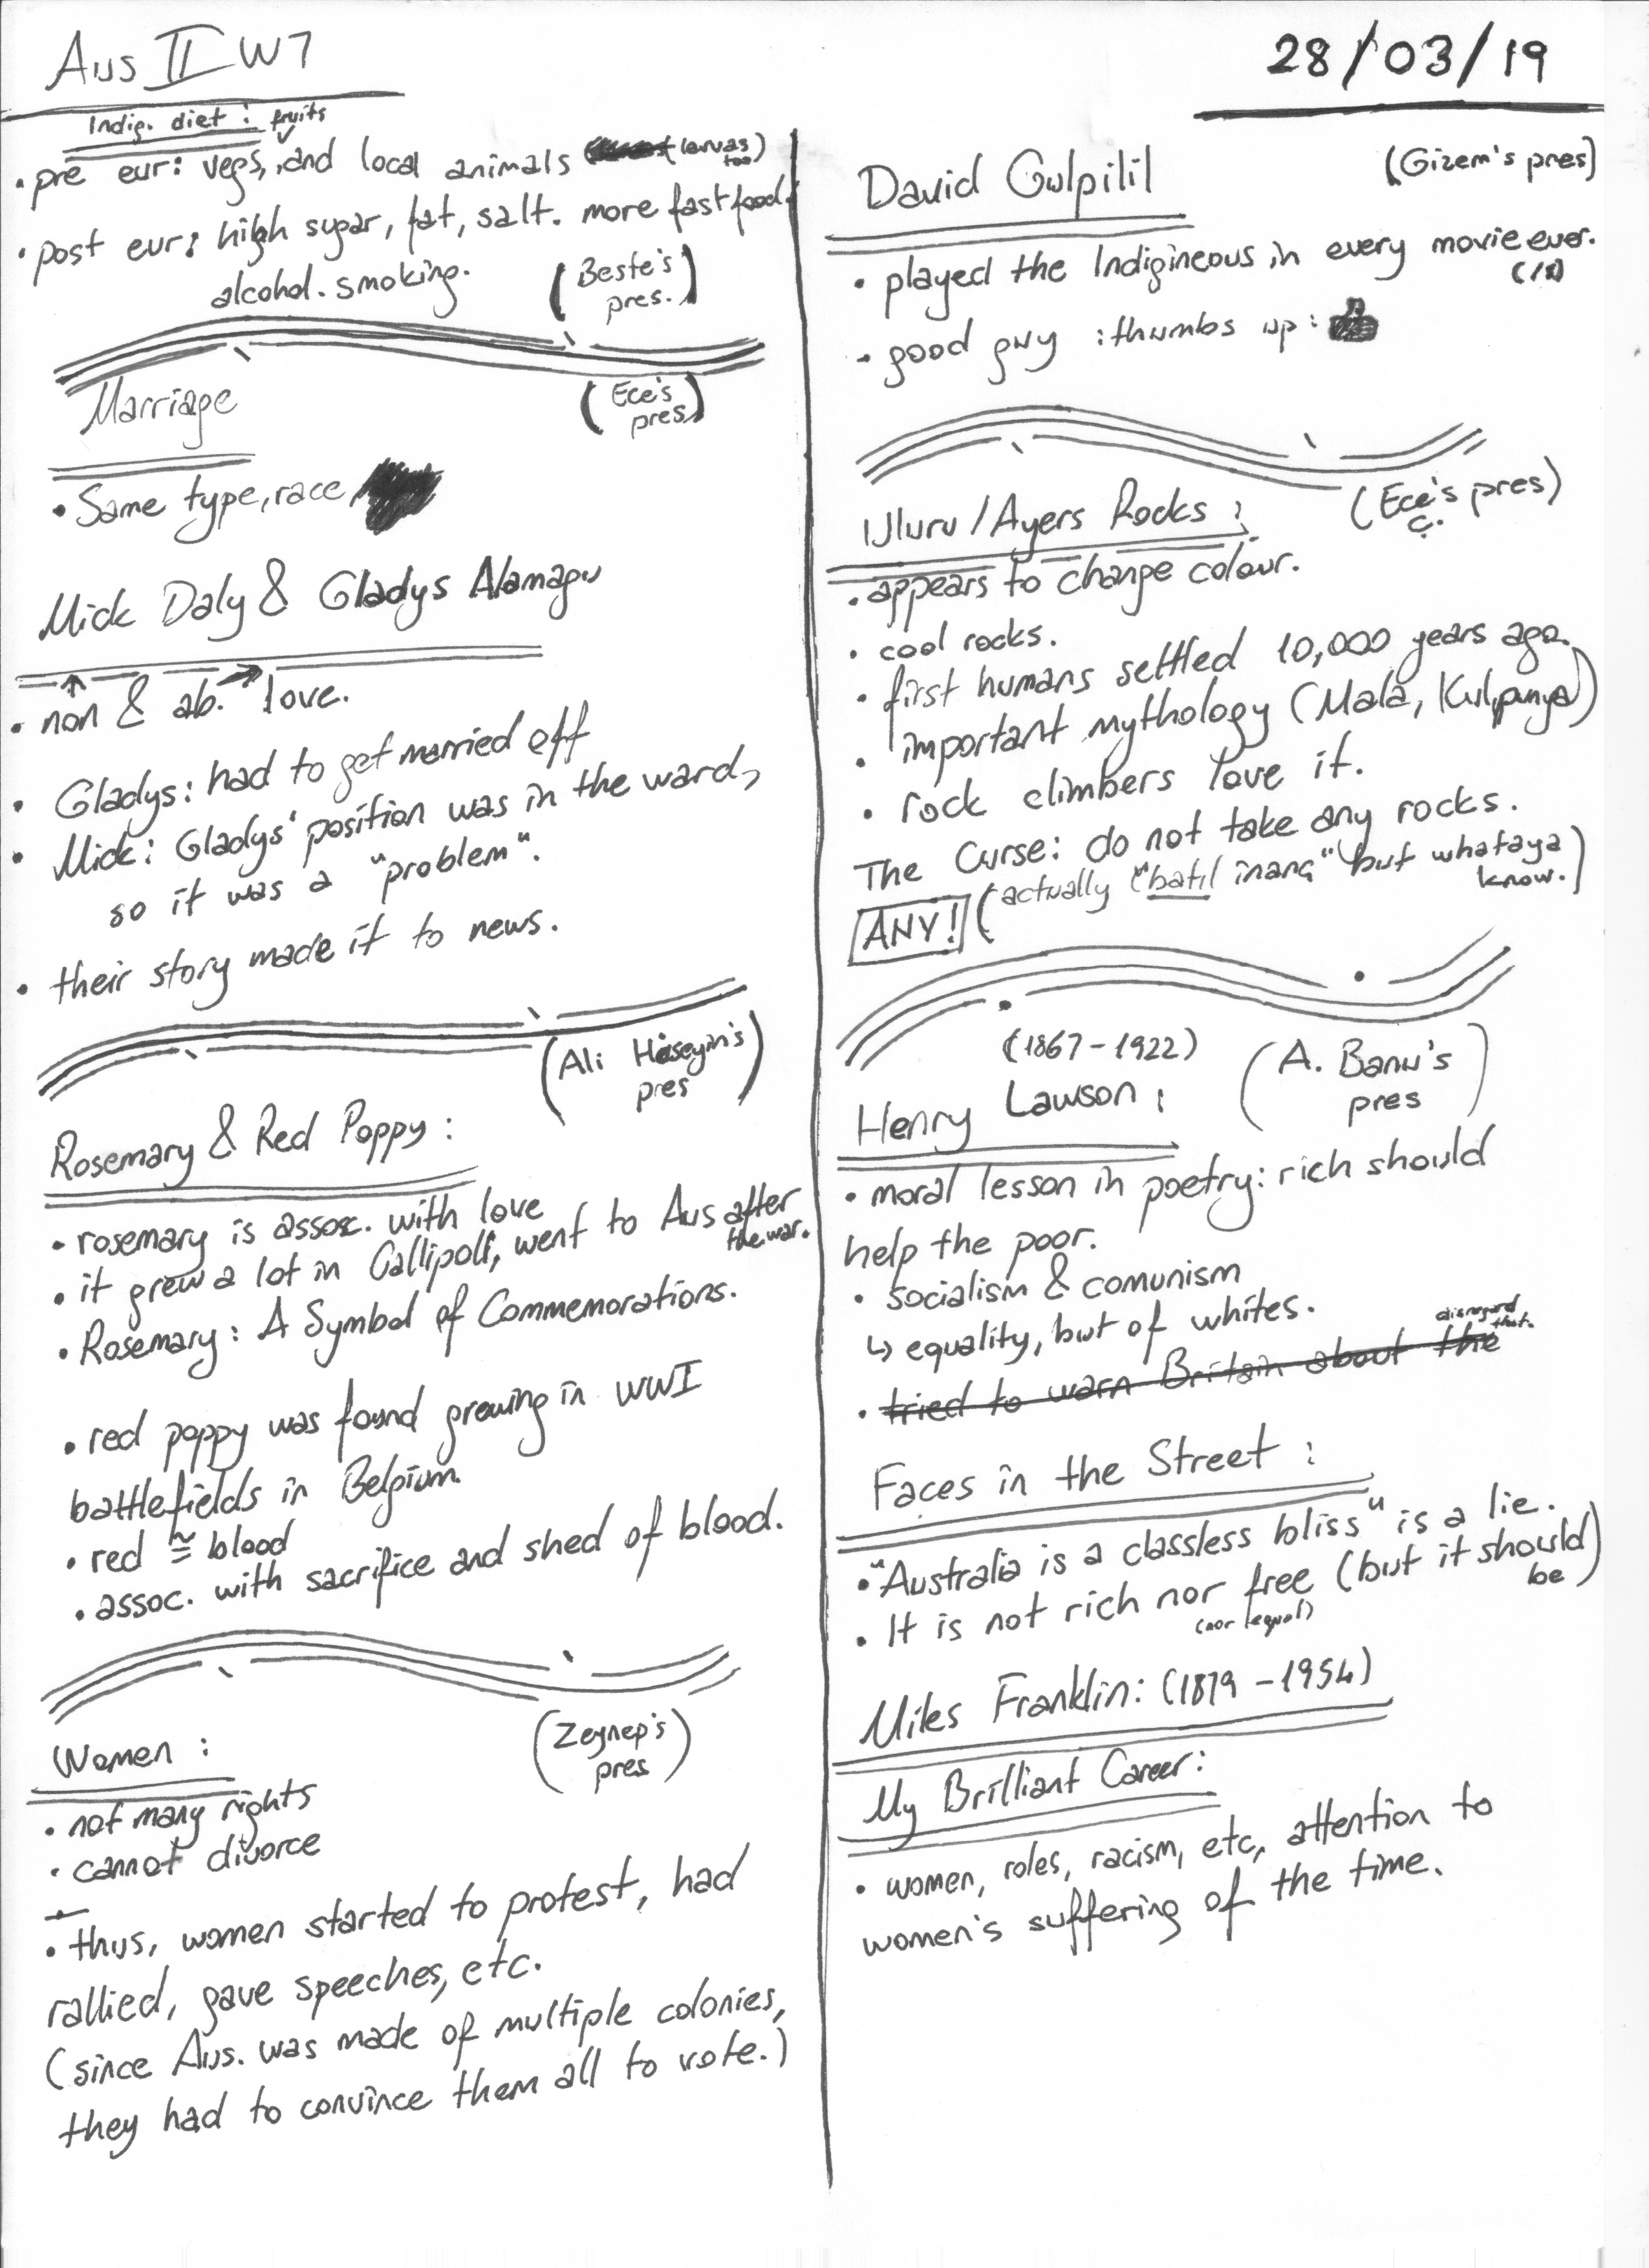 Aus II W7
28/03/19
Indig. diet:
• pre eur: vegs, fruits, and local animals (larvas too)
• post eur: high sugar, fat, salt. more fast food.
alcohol. smoking.
(Beste's pres.)
Marriage
(Ece's pres)
• Same type, race
Mick Daly & Gladys Namagu
• non & ab. love.
• Gladys: had to get married off
• Mick: Gladys' position was in the ward,
so it was a "problem".
• their story made it to news.
(Ali Hüseyin's pres)
Rosemary & Red Poppy:
• rosemary is assoc. with love
• it grew a lot in Gallipoli, went to Aus after the war.
• Rosemary: A Symbol of Commemorations.
• red poppy was found growing in WWI
battlefields in Belgium.
• red ≅ blood
• assoc. with sacrifice and shed of blood.
(Zeynep's pres)
Women:
• not many rights
• cannot divorce
• thus, women started to protest, had
rallied, gave speeches, etc.
(since Aus. was made of multiple colonies,
they had to convince them all to vote.)
David Gulpilil
(Gizem's pres)
• played the Indigineous in every movie ever.
(/s)
• good guy :thumbs up:
(Ece Ç.'s pres)
Uluru/Ayers Rocks:
• appears to change colour.
• cool rocks.
• first humans settled 10,000 years ago.
• important mythology (Mala, Kulpunya)
• rock climbers love it.
The Curse: do not take any rocks.
ANY! (actually "batıl inanç" but whataya know.)
(1867-1922)
Henry Lawson:
(A. Banu's pres)
• moral lesson in poetry: rich should
help the poor.
• socialism & comunism
↳ equality, but of whites.
• tried to warn Britain about the
disregard that.
Faces in the Street:
• "Australia is a classless bliss" is a lie.
• It is not rich nor free (but it should be)
(nor equal)
Miles Franklin: (1879-1954)
My Brilliant Career:
• women, roles, racism, etc, attention to
women's suffering of the time.